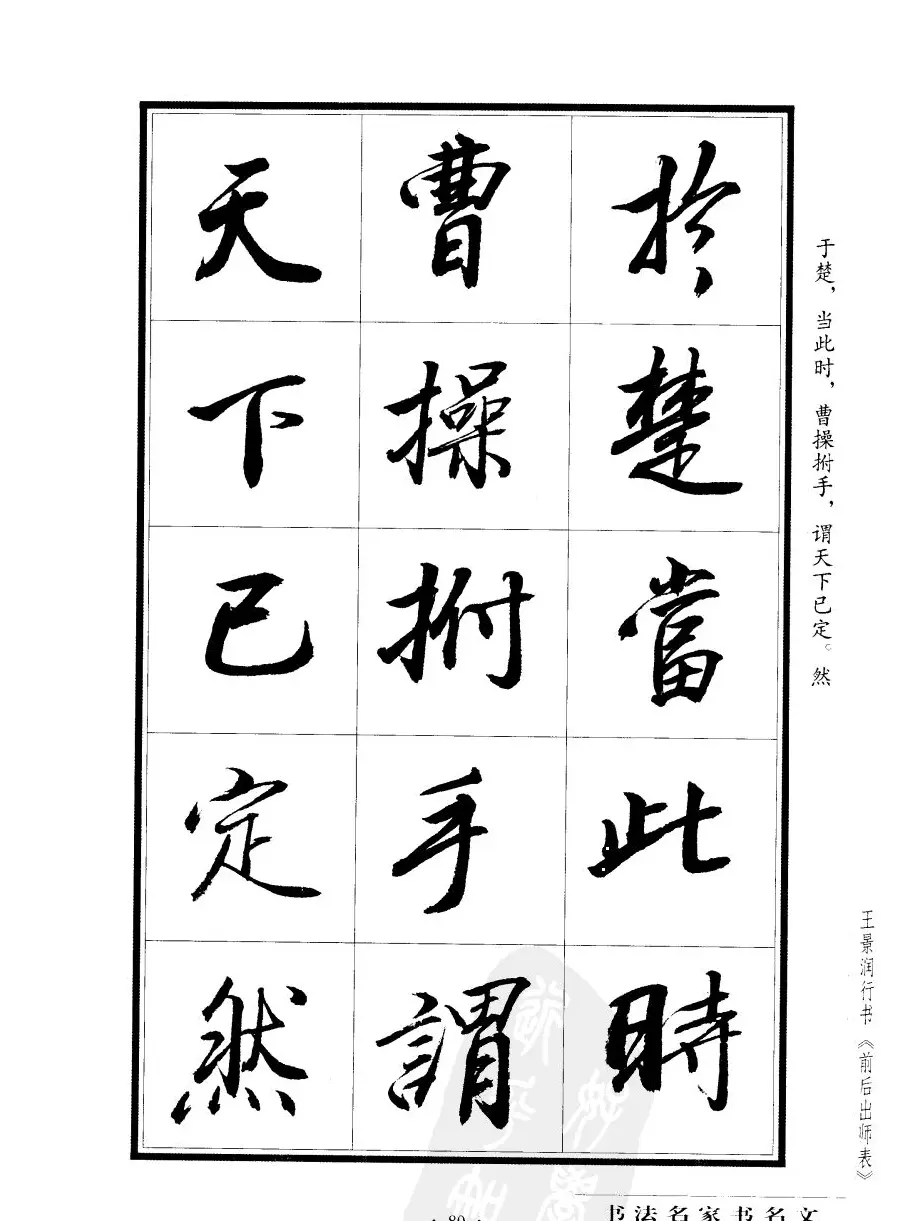 於楚當此時
曹操拊手謂
天下已定然
于楚，当此时，曹操拊手，谓天下已定。然
王景润行书《前后出师表》
· 80 ·
书法名家书名文